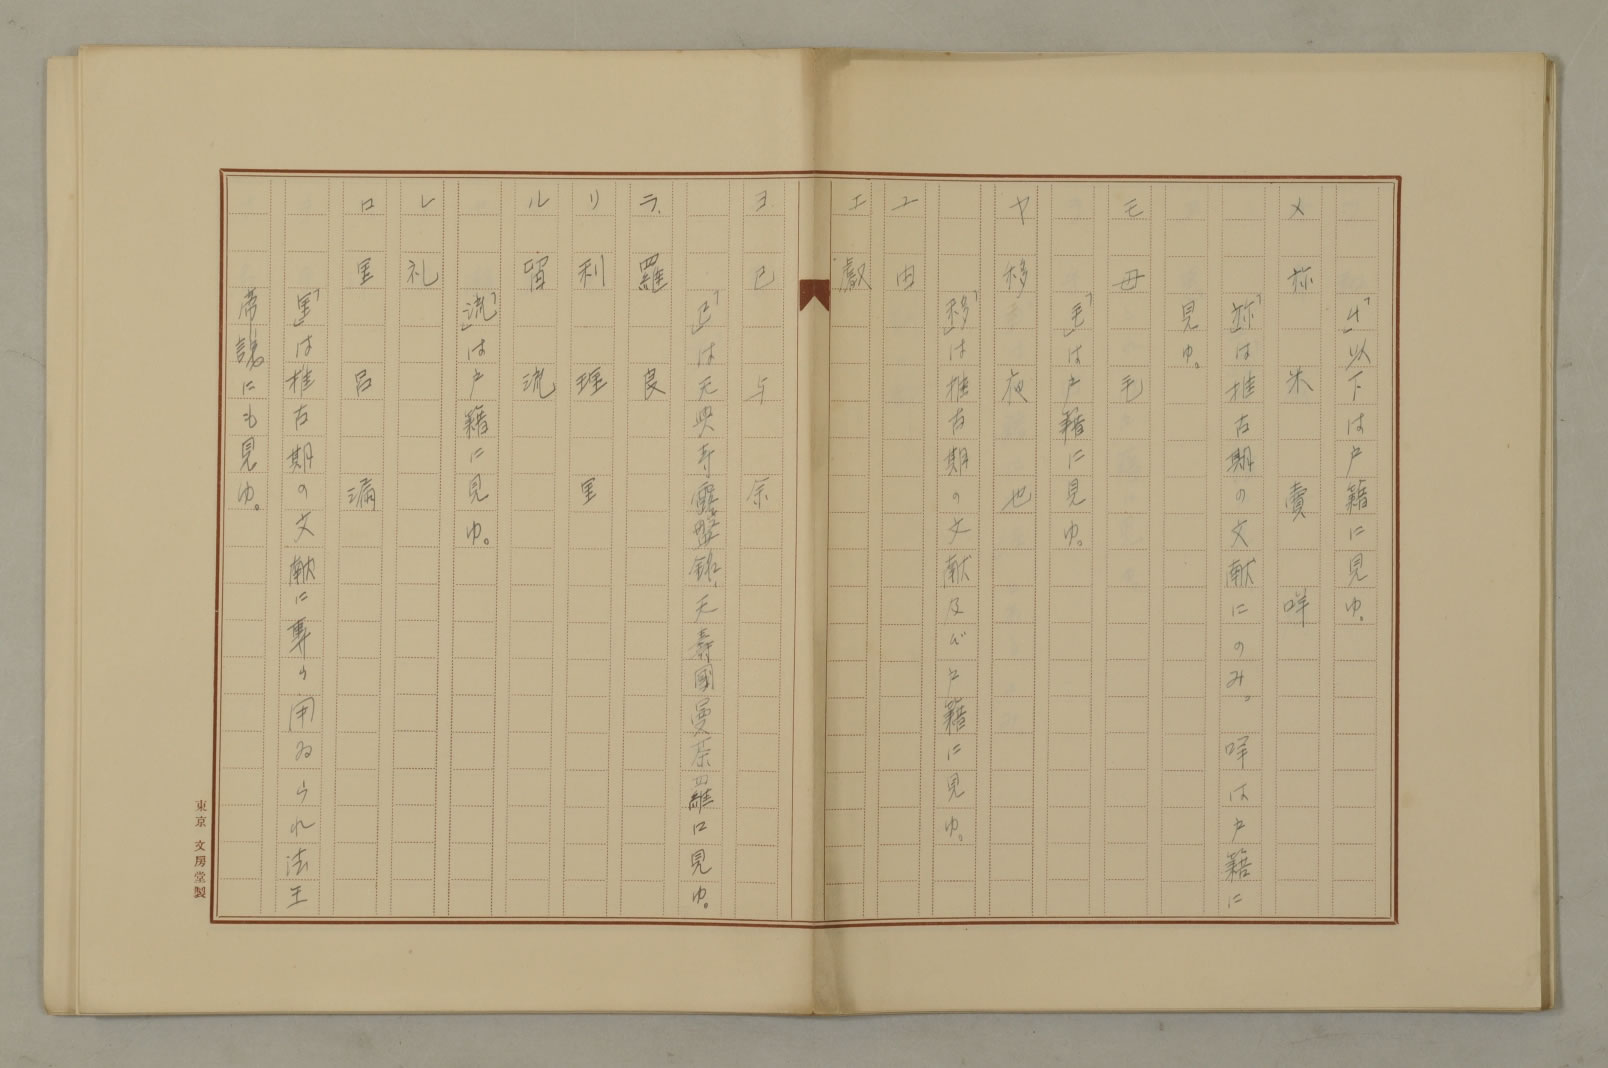 「ム」以下は戸籍に見ゆ。
メ 弥 米 賣 咩
「弥」は推古期の文献にのみ。咩は戸籍に
見ゆ。
モ 毋 毛
「毛」は戸籍に見ゆ。
ヤ 移 夜 也
「移」は推古期の文献及び戸籍に見ゆ。
ユ 由
エ 叡
ヨ 已 与 余
「已」は元興寺露盤銘、天壽國曼荼羅に見ゆ。
ラ 羅 良
リ 利 理 里
ル 留 流
「流」は戸籍に見ゆ。
レ 礼
ロ 里 呂 漏
「里」は推古期の文献に専ら用ゐられ法王
帝説にも見ゆ。
東京 文房堂製